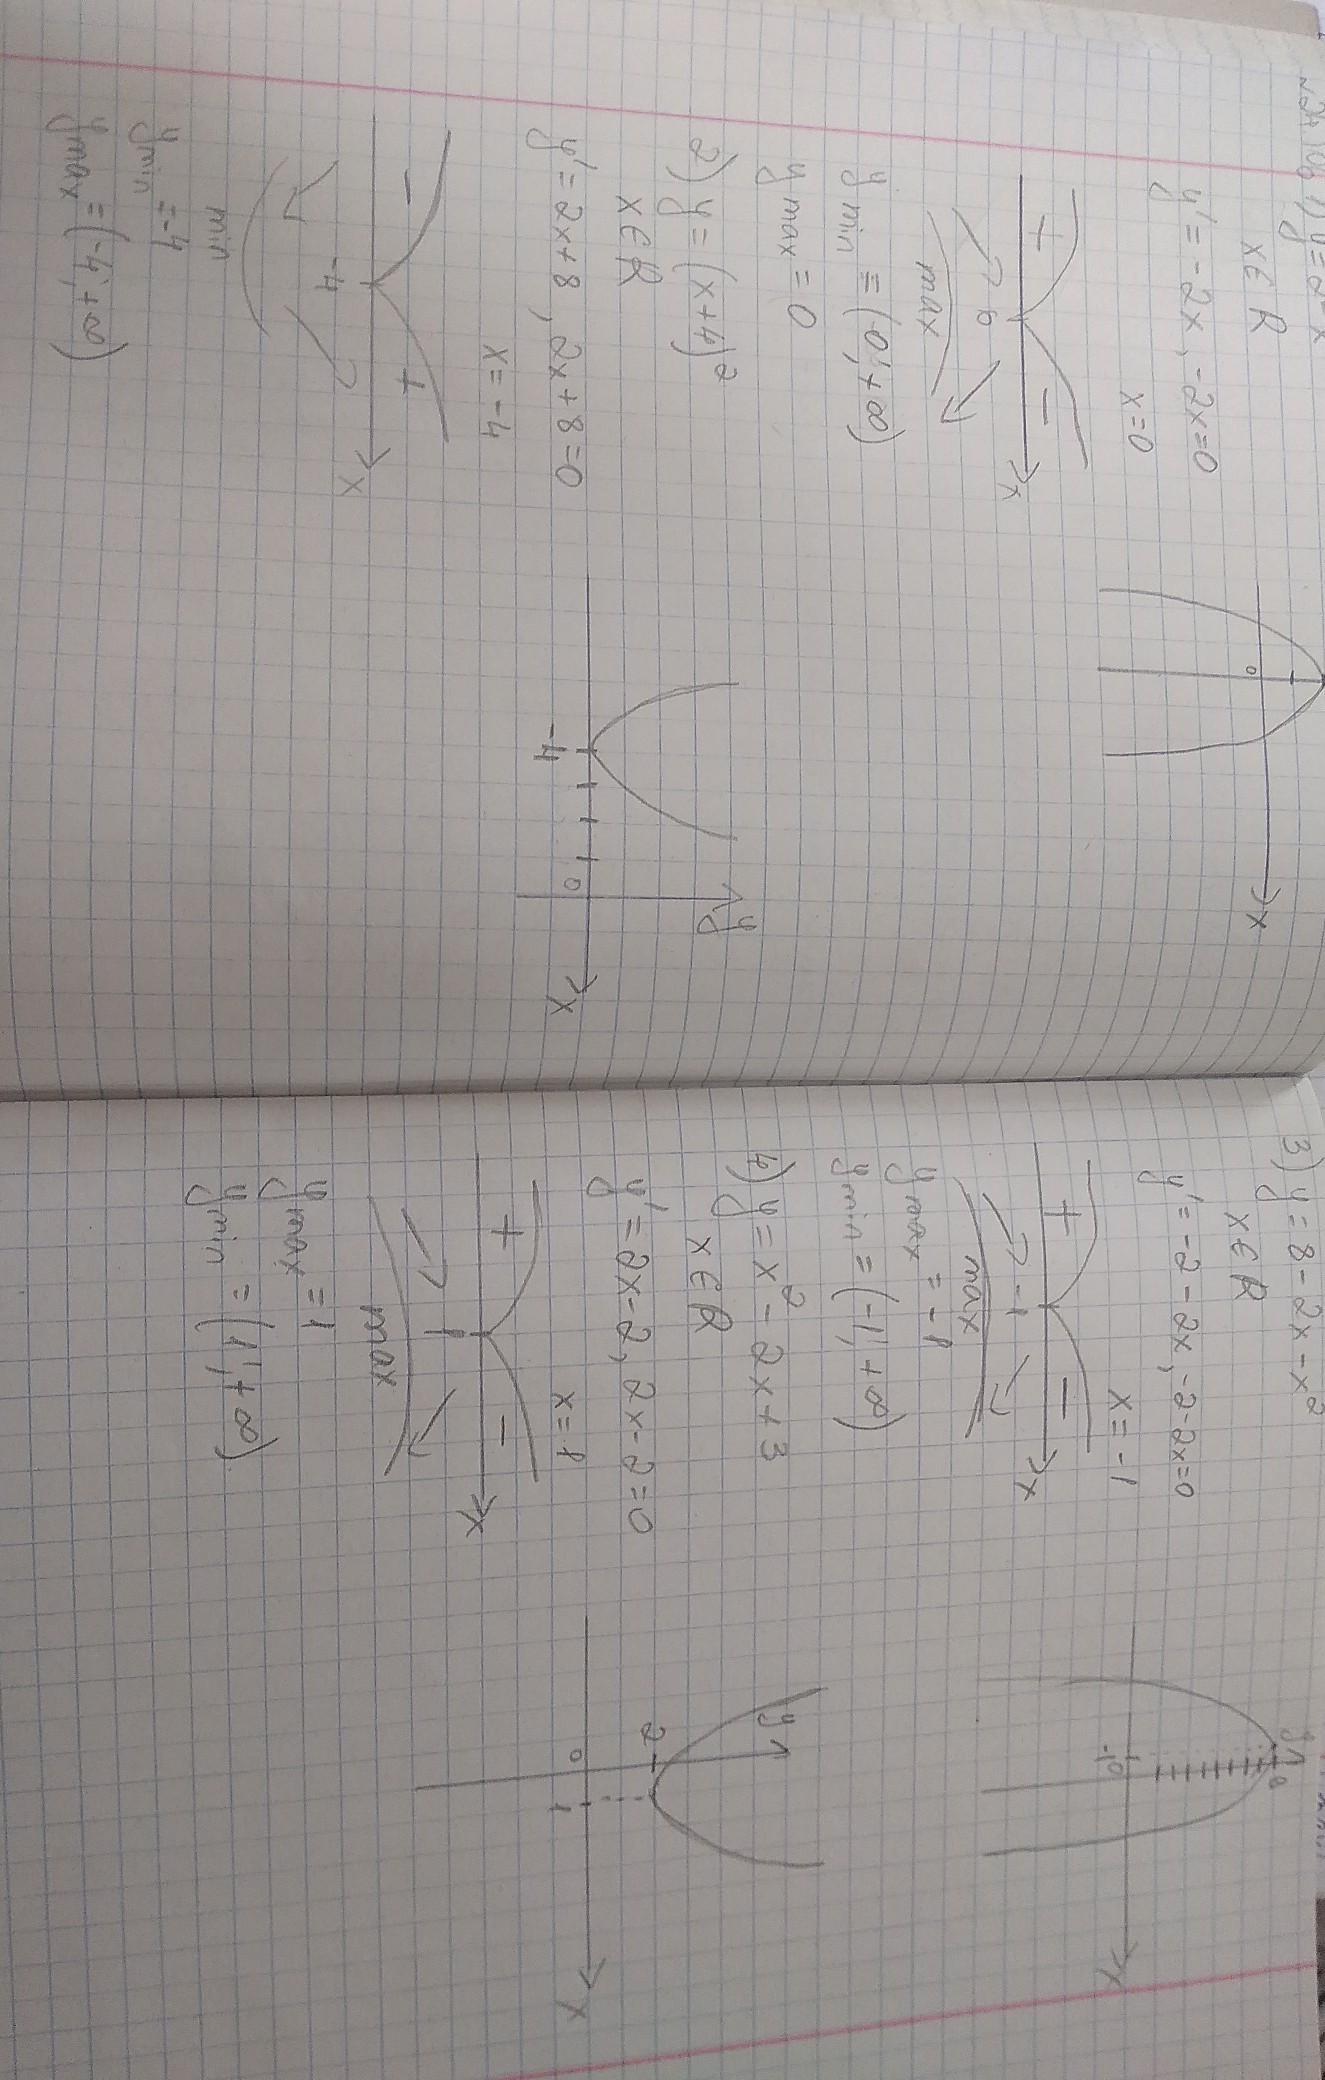 1) y = 2 - x
x∈R
y' = -2x, -2x=0
x=0
+ -
0 x
max
y min = (0; +∞)
y max = 0
0 x
2) y = (x+4)²
x∈R
y' = 2x+8, 2x+8=0
x = -4
- +
-4 x
min
y min = -4
y max = (-4; +∞)
y
-4 0 x
3) y = 8 - 2x - x²
x∈R
y' = -2 - 2x, -2-2x=0
x = -1
+ -
-1 x
max
y max = -1
y min = (-1; +∞)
y
-1 0 x
4) y = x² - 2x + 3
x∈R
y' = 2x-2, 2x-2=0
x=1
+ -
1 x
max
y max = 1
y min = (1; +∞)
y
2
0 1 x